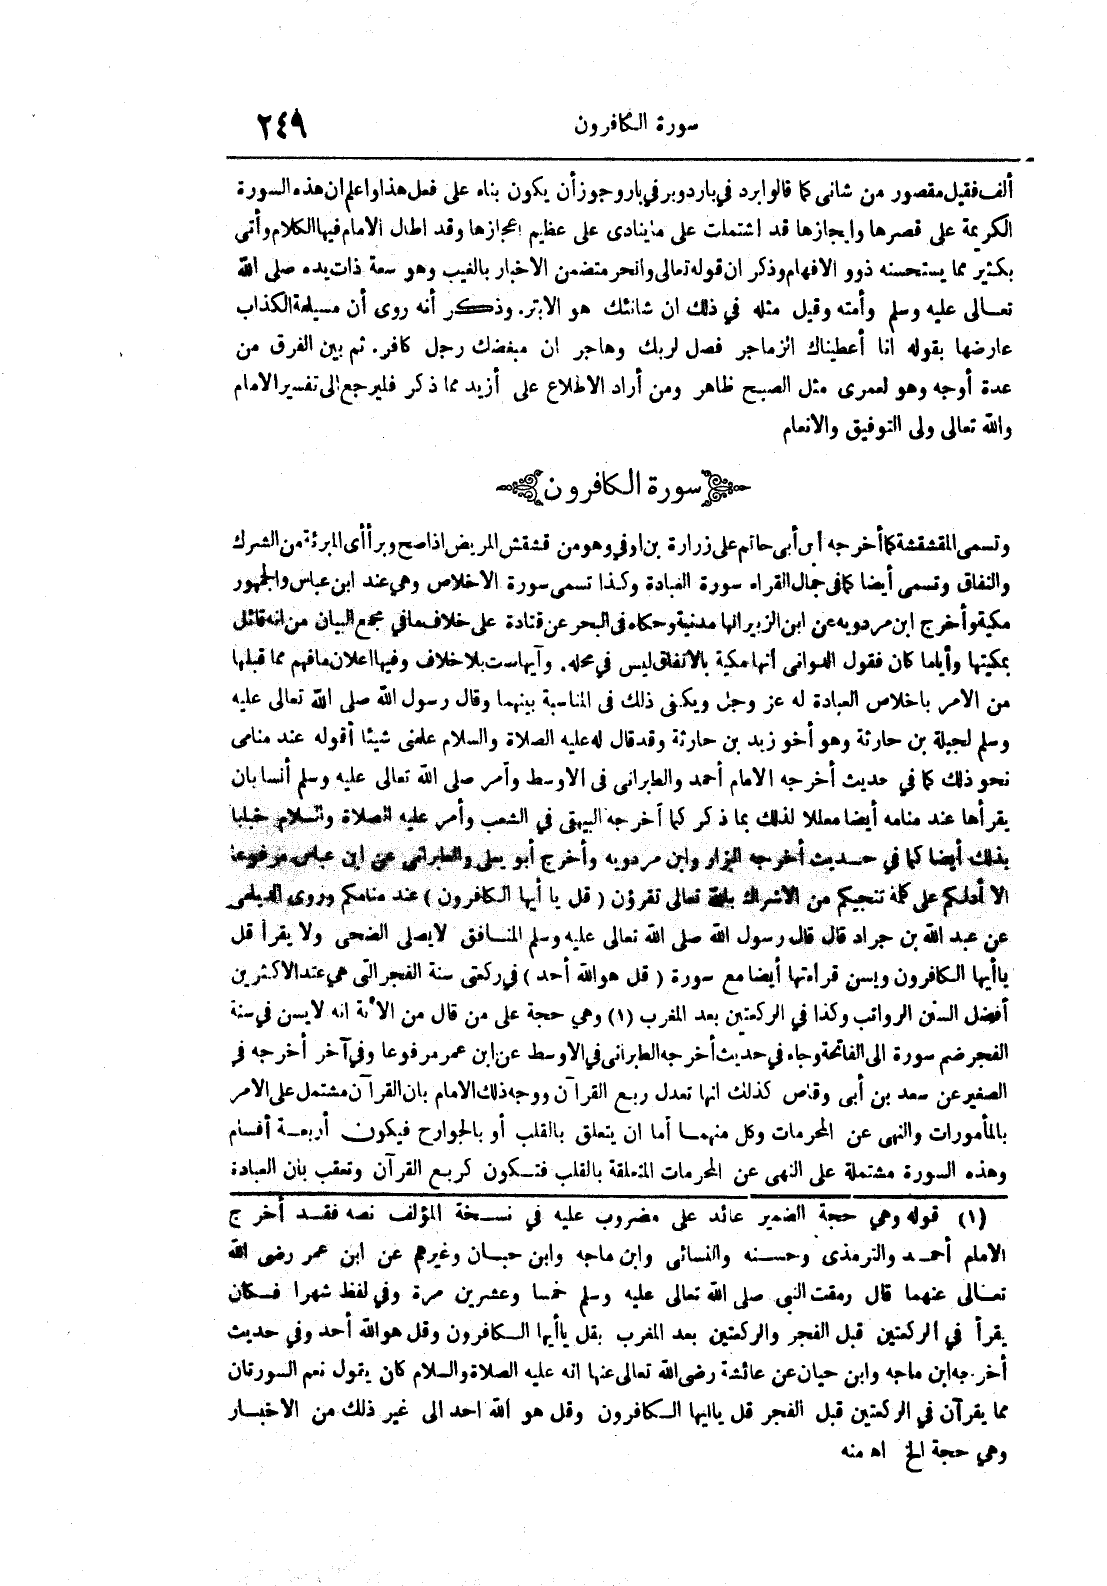 سورة الكافرون ٢٤٩
ألف فقيل مقصور من شانى كما قالوا برد في بارد وبر في بار وجوز أن يكون بناه على فعل هذا واعلم ان هذه السورة
الكريمة على قصرها وايجازها قد اشتملت على ما ينادى على عظيم اعجازها وقد اطال الامام فيها الكلام وأتى
بكثير مما يستحسنه ذوو الافهام وذكر ان قوله تعالى وانحر متضمن الاخبار بالغيب وهو سعة ذات يده صلى الله
تعالى عليه وسلم وأمته وقيل مثله في ذلك ان شانئك هو الابتر. وذكر أنه روى أن مسيلمة الكذاب
عارضها بقوله انا أعطيناك الزماجر فصل لربك وهاجر ان مبغضك رجل كافر. ثم بين الفرق من
عدة أوجه وهو لعمرى مثل الصبح ظاهر ومن أراد الاطلاع على أزيد مما ذكر فليرجع الى تفسير الامام
والله تعالى ولى التوفيق والانعام
سورة الكافرون
وتسمى المقشقشة كما أخرجه ابن أبى حاتم على زرارة بن اوفي وهو من قشقش المريض اذا صح وبرأ أى المبرئة من الشرك
والنفاق وتسمى أيضا كما في جمال القراء سورة العبادة وكذا تسمى سورة الاخلاص وهي عند ابن عباس والجمهور
مكية وأخرج ابن مردويه عن ابن الزبير انها مدنية وحكاه في البحر عن قتادة على خلاف ما في مجمع البيان من انه قائل
بمكيتها وأياما كان فقول الدوانى أنها مكية بالاتفاق ليس في محله. وآيها ست بلا خلاف وفيها اعلان ما فهم مما قبلها
من الامر باخلاص العبادة له عز وجل ويكفى ذلك فى المناسبة بينهما وقال رسول الله صلى الله تعالى عليه
وسلم لجبلة بن حارثة وهو أخو زيد بن حارثة وقد قال له عليه الصلاة والسلام علمنى شيئا أقوله عند منامى
نحو ذلك كما في حديث أخرجه الامام أحمد والطبرانى فى الاوسط وأمر صلى الله تعالى عليه وسلم أنسا بان
يقرأها عند منامه أيضا معللا لذلك بما ذكر كما أخرجه البيهقى في الشعب وأمر عليه الصلاة والسلام خبابا
بذلك أيضا كما في حديث أخرجه البزار وابن مردويه وأخرج أبو يعلى والطبرانى عن ابن عباس مرفوعا
الا أدلكم على كلمة تنجيكم من الاشراك بالله تعالى تقرؤن ( قل يا أيها الكافرون ) عند منامكم وروى الديلمى
عن عبد الله بن جراد قال قال رسول الله صلى الله تعالى عليه وسلم المنافق لا يصلى الضحى ولا يقرأ قل
يا أيها الكافرون ويسن قراءتها أيضا مع سورة ( قل هو الله أحد ) في ركعتى سنة الفجر التى هي عند الاكثرين
أفضل السنن الرواتب وكذا في الركعتين بعد المغرب (١) وهي حجة على من قال من الائمة انه لايسن في سنة
الفجر ضم سورة الى الفاتحة وجاء في حديث أخرجه الطبرانى في الاوسط عن ابن عمر مرفوعا وفي آخر أخرجه في
الصغير عن سعد بن أبى وقاص كذلك انها تعدل ربع القرآن ووجه ذلك الامام بان القرآن مشتمل على الامر
بالمأمورات والنهى عن المحرمات وكل منهما أما ان يتعلق بالقلب أو بالجوارح فيكون أربعة أقسام
وهذه السورة مشتملة على النهى عن المحرمات المتعلقة بالقلب فتكون كربع القرآن وتعقب بان العبادة
(١) قوله وهي حجة الضمير عائد على مضروب عليه في نسخة المؤلف نصه فقد أخرج
الامام أحمد والترمذى وحسنه والنسائى وابن ماجه وابن حبان وغيرهم عن ابن عمر رضى الله
تعالى عنهما قال رمقت النبى صلى الله تعالى عليه وسلم خمسا وعشرين مرة وفي لفظ شهرا فكان
يقرأ في الركعتين قبل الفجر والركعتين بعد المغرب بقل يا أيها الكافرون وقل هو الله أحد وفي حديث
أخرجه ابن ماجه وابن حيان عن عائشة رضى الله تعالى عنها انه عليه الصلاة والسلام كان يقول نعم السورتان
مما يقرآن في الركعتين قبل الفجر قل ياايها الكافرون وقل هو الله احد الى غير ذلك من الاخبار
وهي حجة الخ اه منه